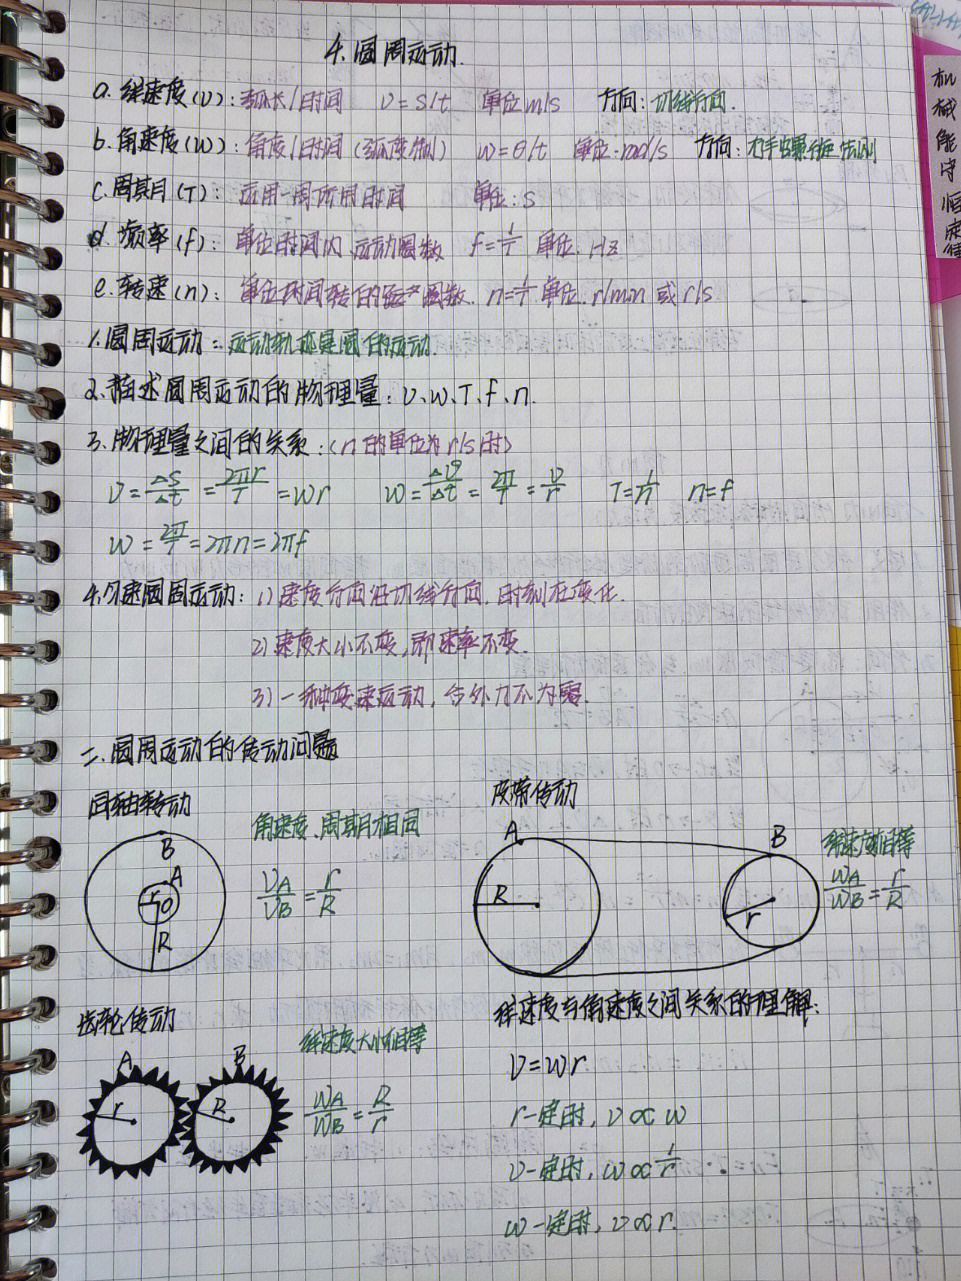 4.圆周运动.
a.线速度(v):弧长/时间 v=s/t 单位m/s 方向:切线方向.
b.角速度(w):角度/时间(弧度制) w=θ/t 单位:rad/s 方向:右手螺旋定则
c.周期(T):运用一周所用时间 单位:s
d.频率(f):单位时间内运动圈数 f=1/T 单位.Hz
e.转速(n):单位时间转的圈数. n=1/T 单位.r/min 或r/s
1.圆周运动:运动轨迹是圆的运动.
2.描述圆周运动的物理量:v、w、T、f、n.
3.物理量之间的关系:(n的单位为r/s时)
v=Δs/Δt=2πr/T=wr w=Δθ/Δt=2π/T=v/r T=1/n n=f
w=2π/T=2πn=2πf
4.匀速圆周运动:1)速度方向沿切线方向.时刻在变化.
2)速度大小不变,即速率不变.
3)一种变速运动,合外力不为零.
二.圆周运动的传动问题
同轴转动
角速度、周期相同
vA/vB=r/R
B
A
r
O
R
皮带传动
A
B
R
r
线速度相等
wA/wB=r/R
齿轮传动
线速度大小相等
A
B
r
R
wA/wB=R/r
线速度与角速度之间关系的理解:
v=wr
r一定时,v∝w
v一定时,w∝1/r
w一定时,v∝r.
机械能守恒定律